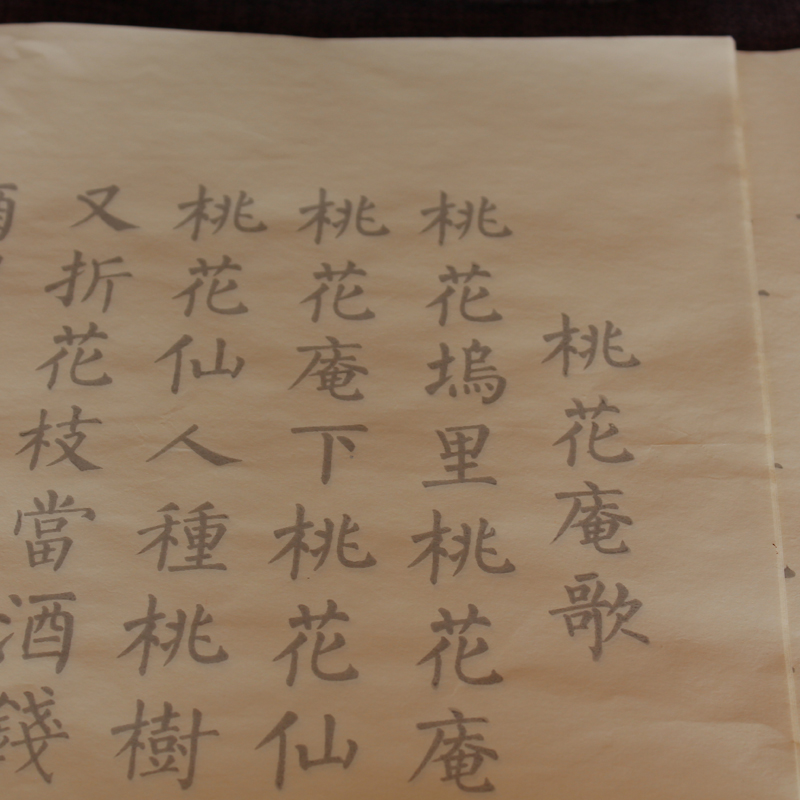 桃花庵歌
桃花塢里桃花庵
桃花庵下桃花仙
桃花仙人種桃樹
又折花枝當酒錢